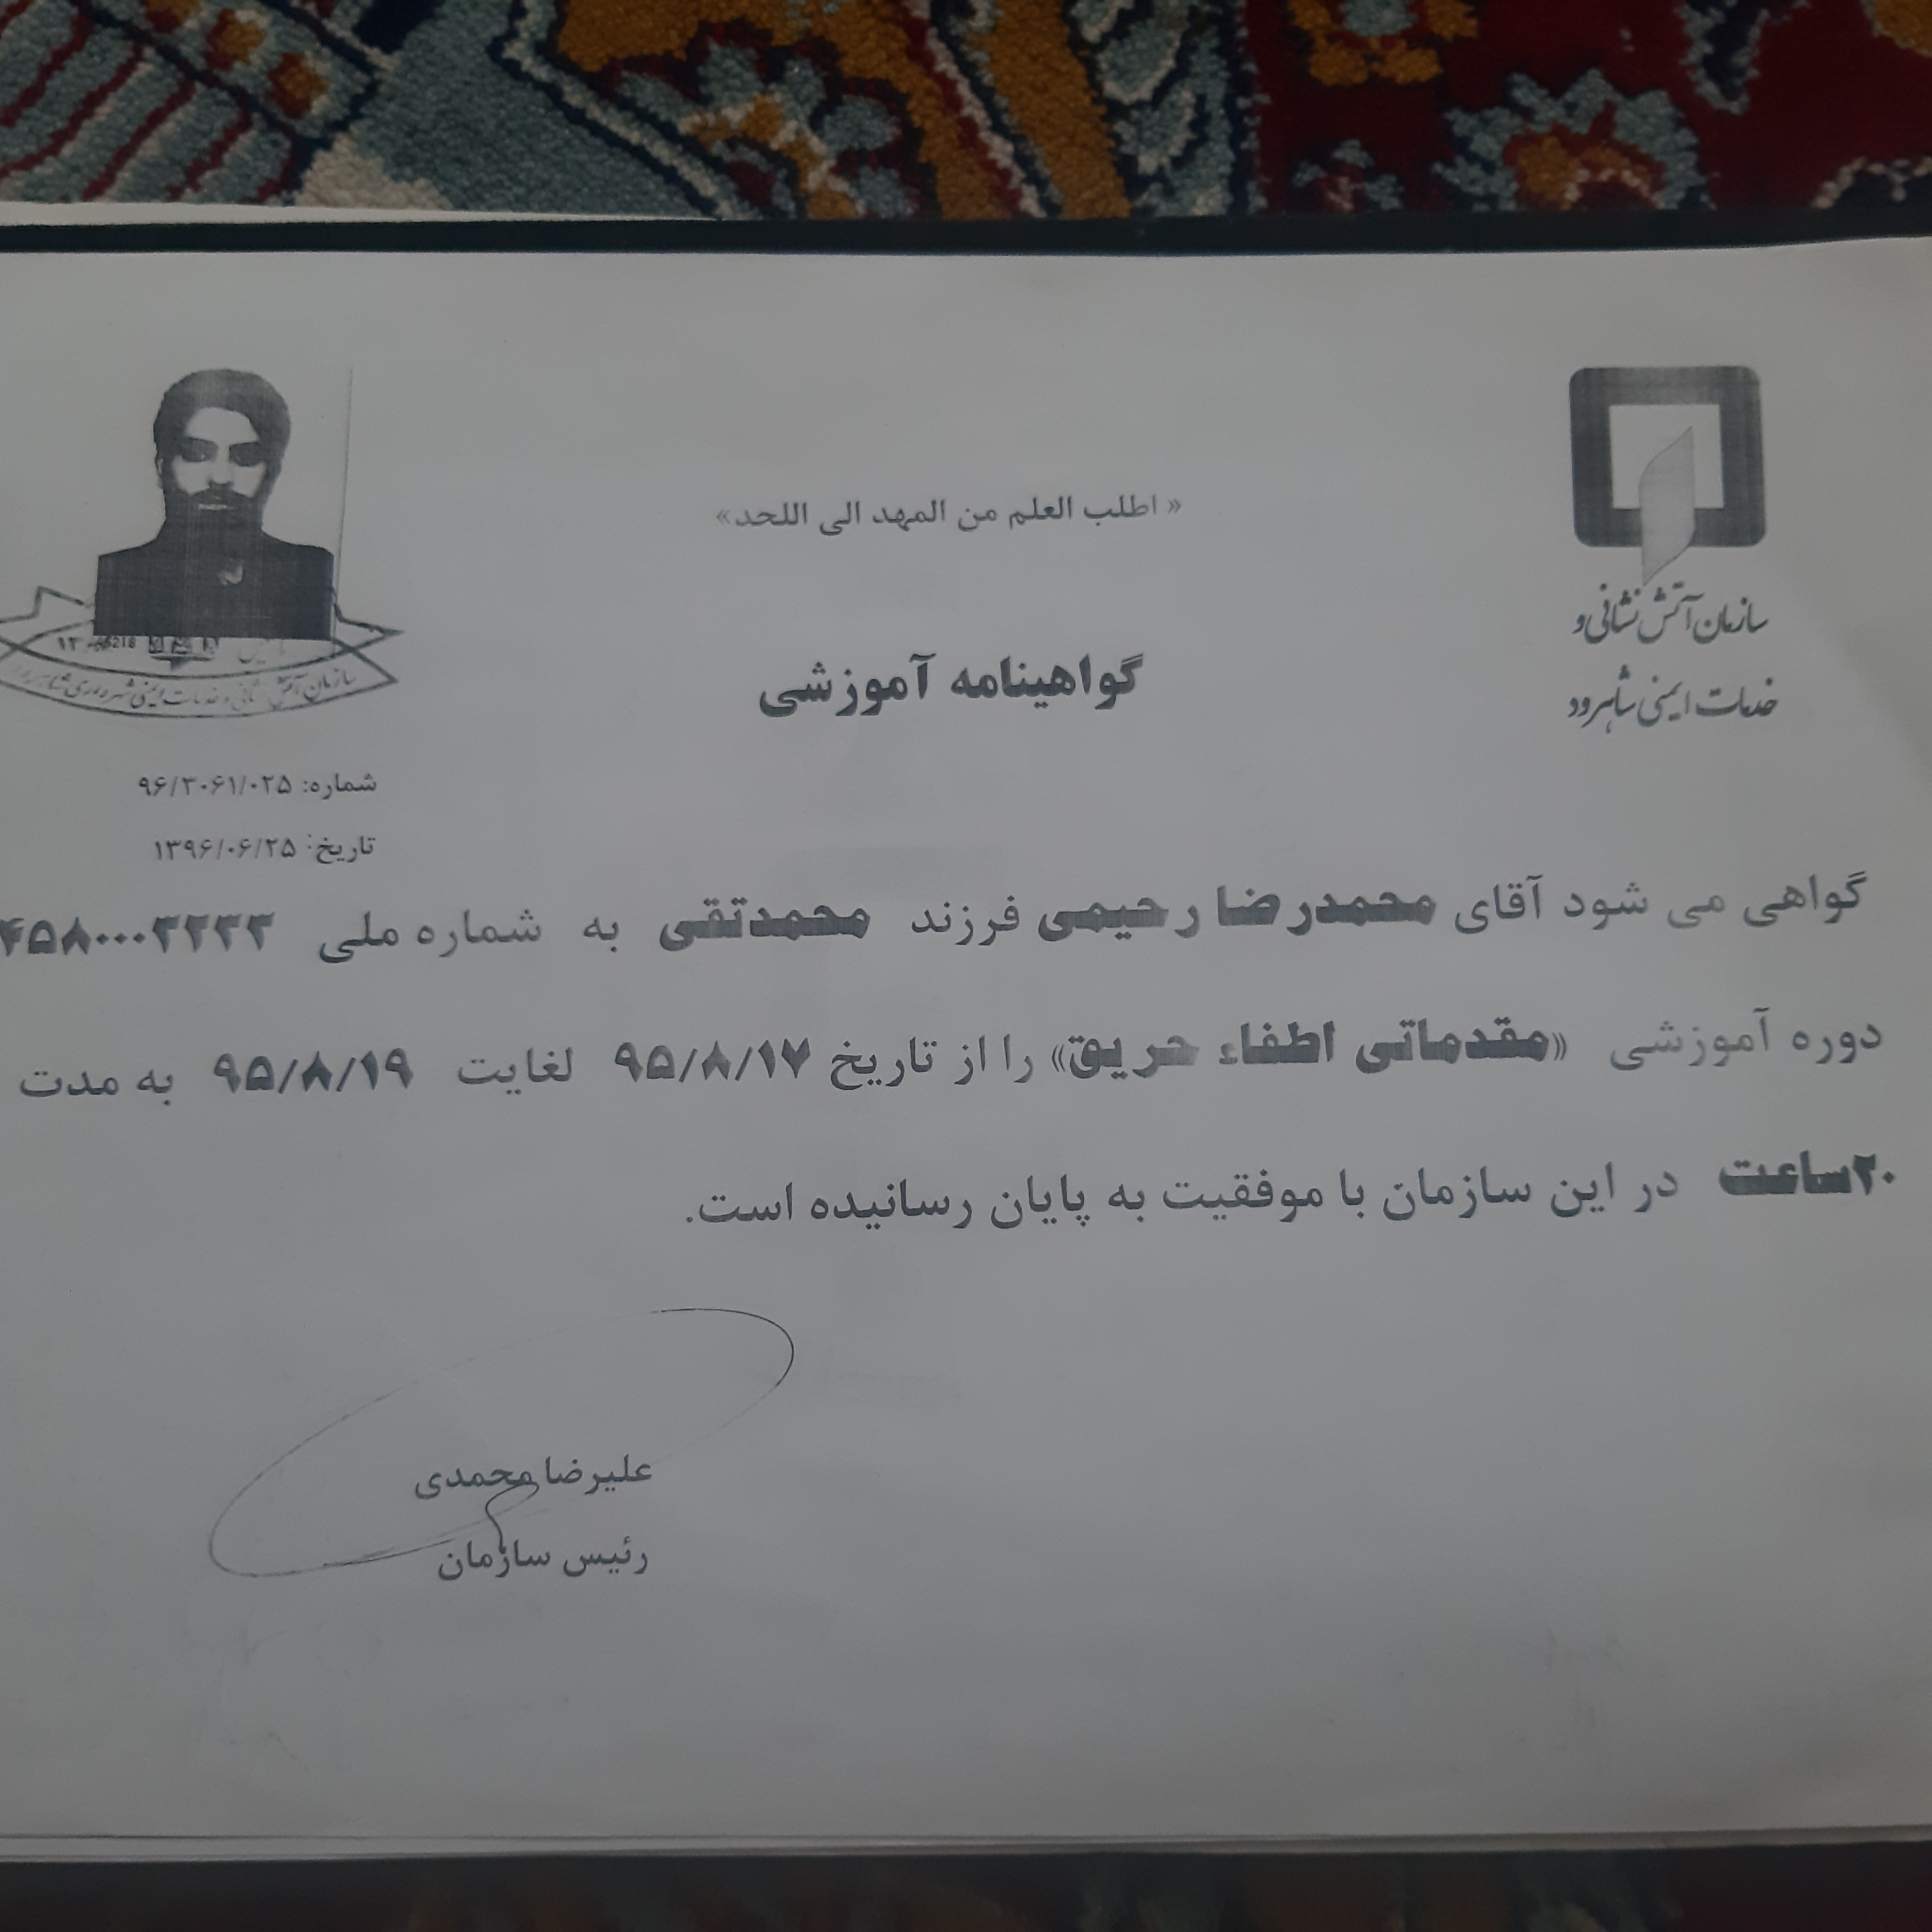 « اطلب العلم من المهد الی اللحد»
سازمان آتش نشانی و
خدمات ایمنی شاهرود
گواهینامه آموزشی
سازمان آتش نشانی و خدمات ایمنی شهرداری شاهرود
شماره: ۹۶/۳۰۶۱/۰۲۵
تاریخ: ۱۳۹۶/۰۶/۲۵
گواهی می شود آقای محمدرضا رحیمی فرزند محمدتقی به شماره ملی ۴۵۸۰۰۰۳۲۳۳
دوره آموزشی «مقدماتی اطفاء حریق» را از تاریخ ۹۵/۸/۱۷ لغایت ۹۵/۸/۱۹ به مدت
۲۰ساعت در این سازمان با موفقیت به پایان رسانیده است.
علیرضا محمدی
رئیس سازمان